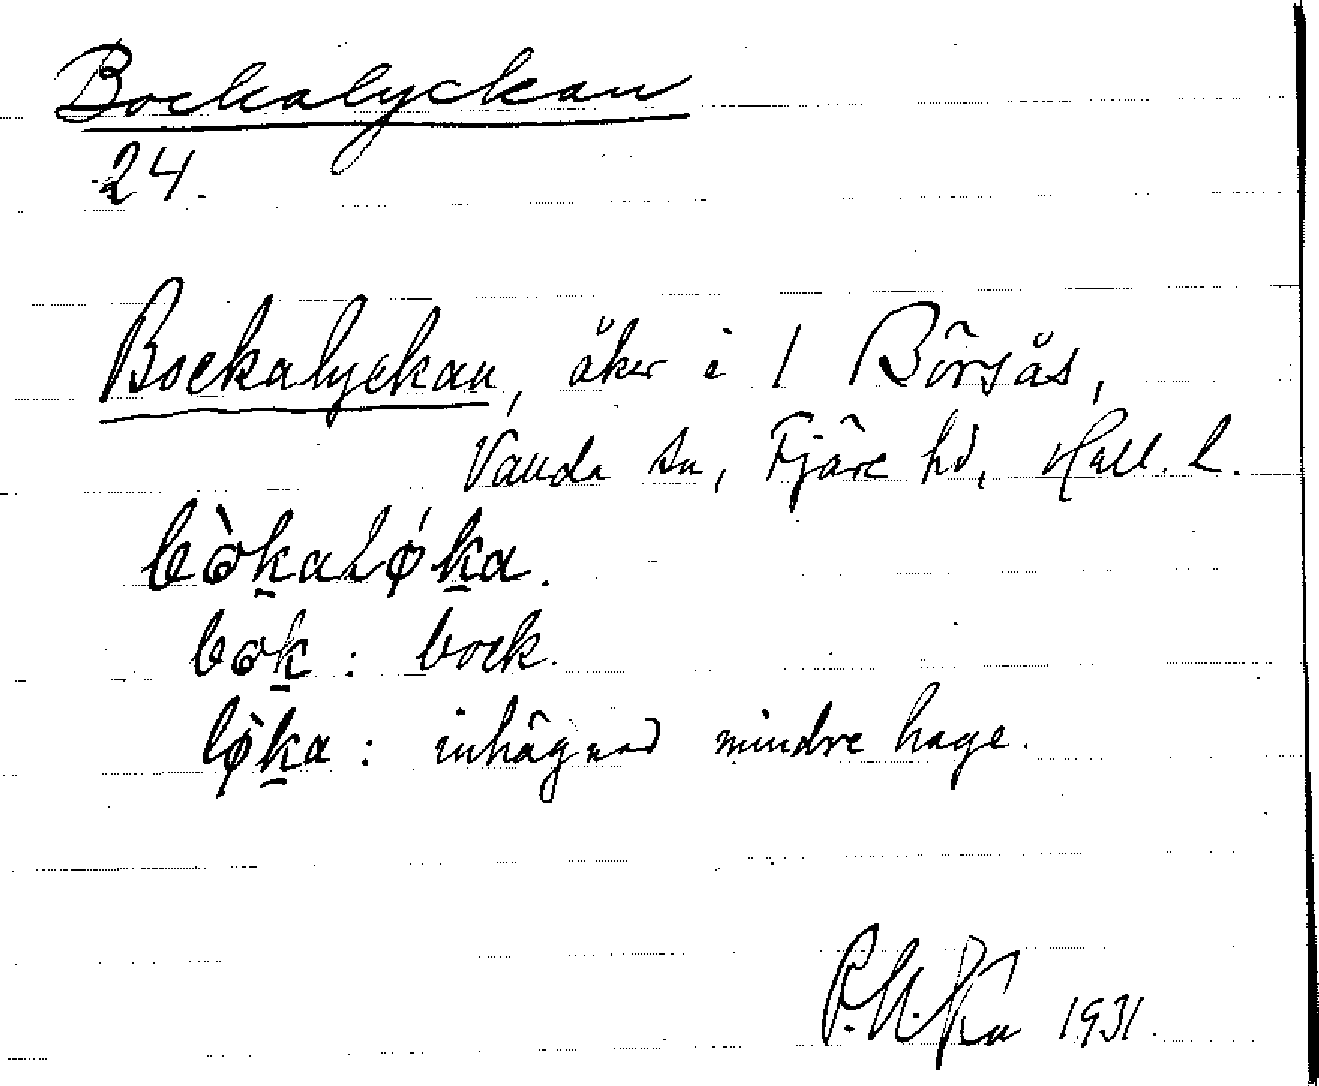 Bockalyckan
24.
Bockalyckan, åker i 1 Börsås,
Vanda sn, Fjäre hd, Hall. l.
bòkaLǿka.
bok : bock.
lø̀ka : inhägnad mindre hage.
1931.